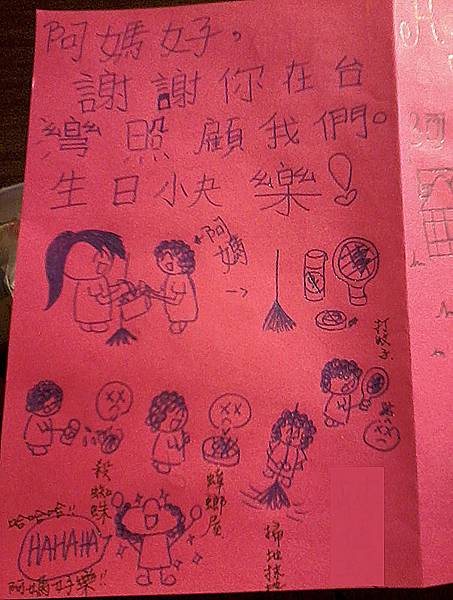 阿媽好，
謝謝你在台
灣照顧我們。
生日快樂！
阿媽
打蚊子
殺蜘蛛
蟑螂屋
掃地抹地
哈哈哈!!
HAHAHA
阿媽好樂!!